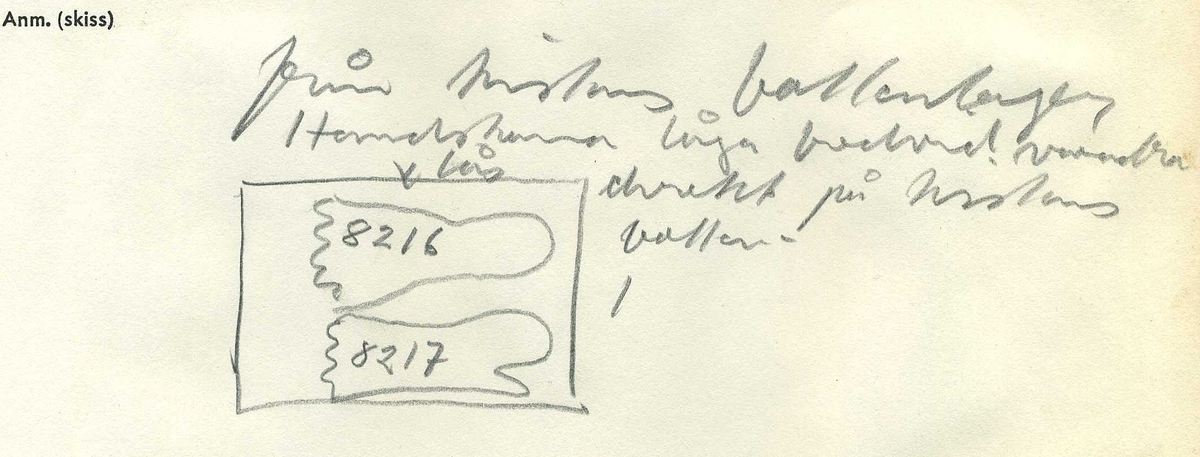 Anm. (skiss)
från kistans bottenlager
Handskarna låga bredvid varandra
lås
direkt på kistans
botten.
8216
8217